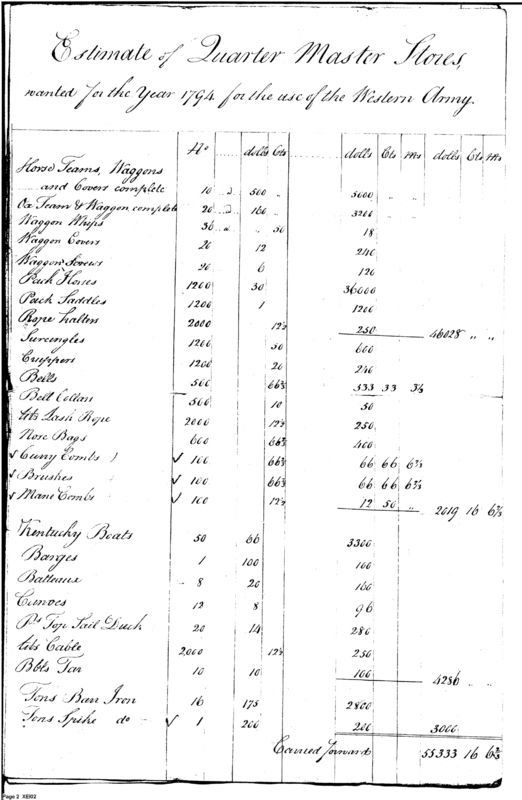 Estimate of Quarter Master Stores,
wanted for the Year 1794 for the use of the Western Army.
No dolls Cts dolls Cts Ms dolls Cts Ms
Horse Teams, Waggons
and Covers complete 10 a 500 " 5000 " "
Ox Team & Waggon complete 20 a 160 3200
Waggon Whips 36 a " 50 18
Waggon Covers 20 12 240
Waggon Screws 20 6 120
Pack Horses 1200 30 36000
Pack Saddles 1200 1 1200
Rope halters 2000 12½ 250 46028 " "
Surcingles 1200 50 600
Cruppers 1200 20 240
Bells 500 66⅔ 333 33 3⅓
Bell Collars 500 10 50
lbs Lash Rope 2000 12½ 250
Nose Bags 600 66⅔ 400
√ Curry Combs √ 100 66⅔ 66 66 6⅔
√ Brushes √ 100 66⅔ 66 66 6⅔
√ Mane Combs √ 100 12½ 12 50 " 2019 16 6⅔
Kentucky Boats 50 66 3300
Barges 1 100 100
Batteaux 8 20 160
Canoes 12 8 96
Ps Top Sail Duck 20 14 280
lbs Cable 2,000 12½ 250
Bbls Tar 10 10 100 4286 " "
Tons Barr Iron 16 175 2800
Tons Spike do √ 1 200 200 3000
Carried forward 55333 16 6⅔
Page 2 XEI02